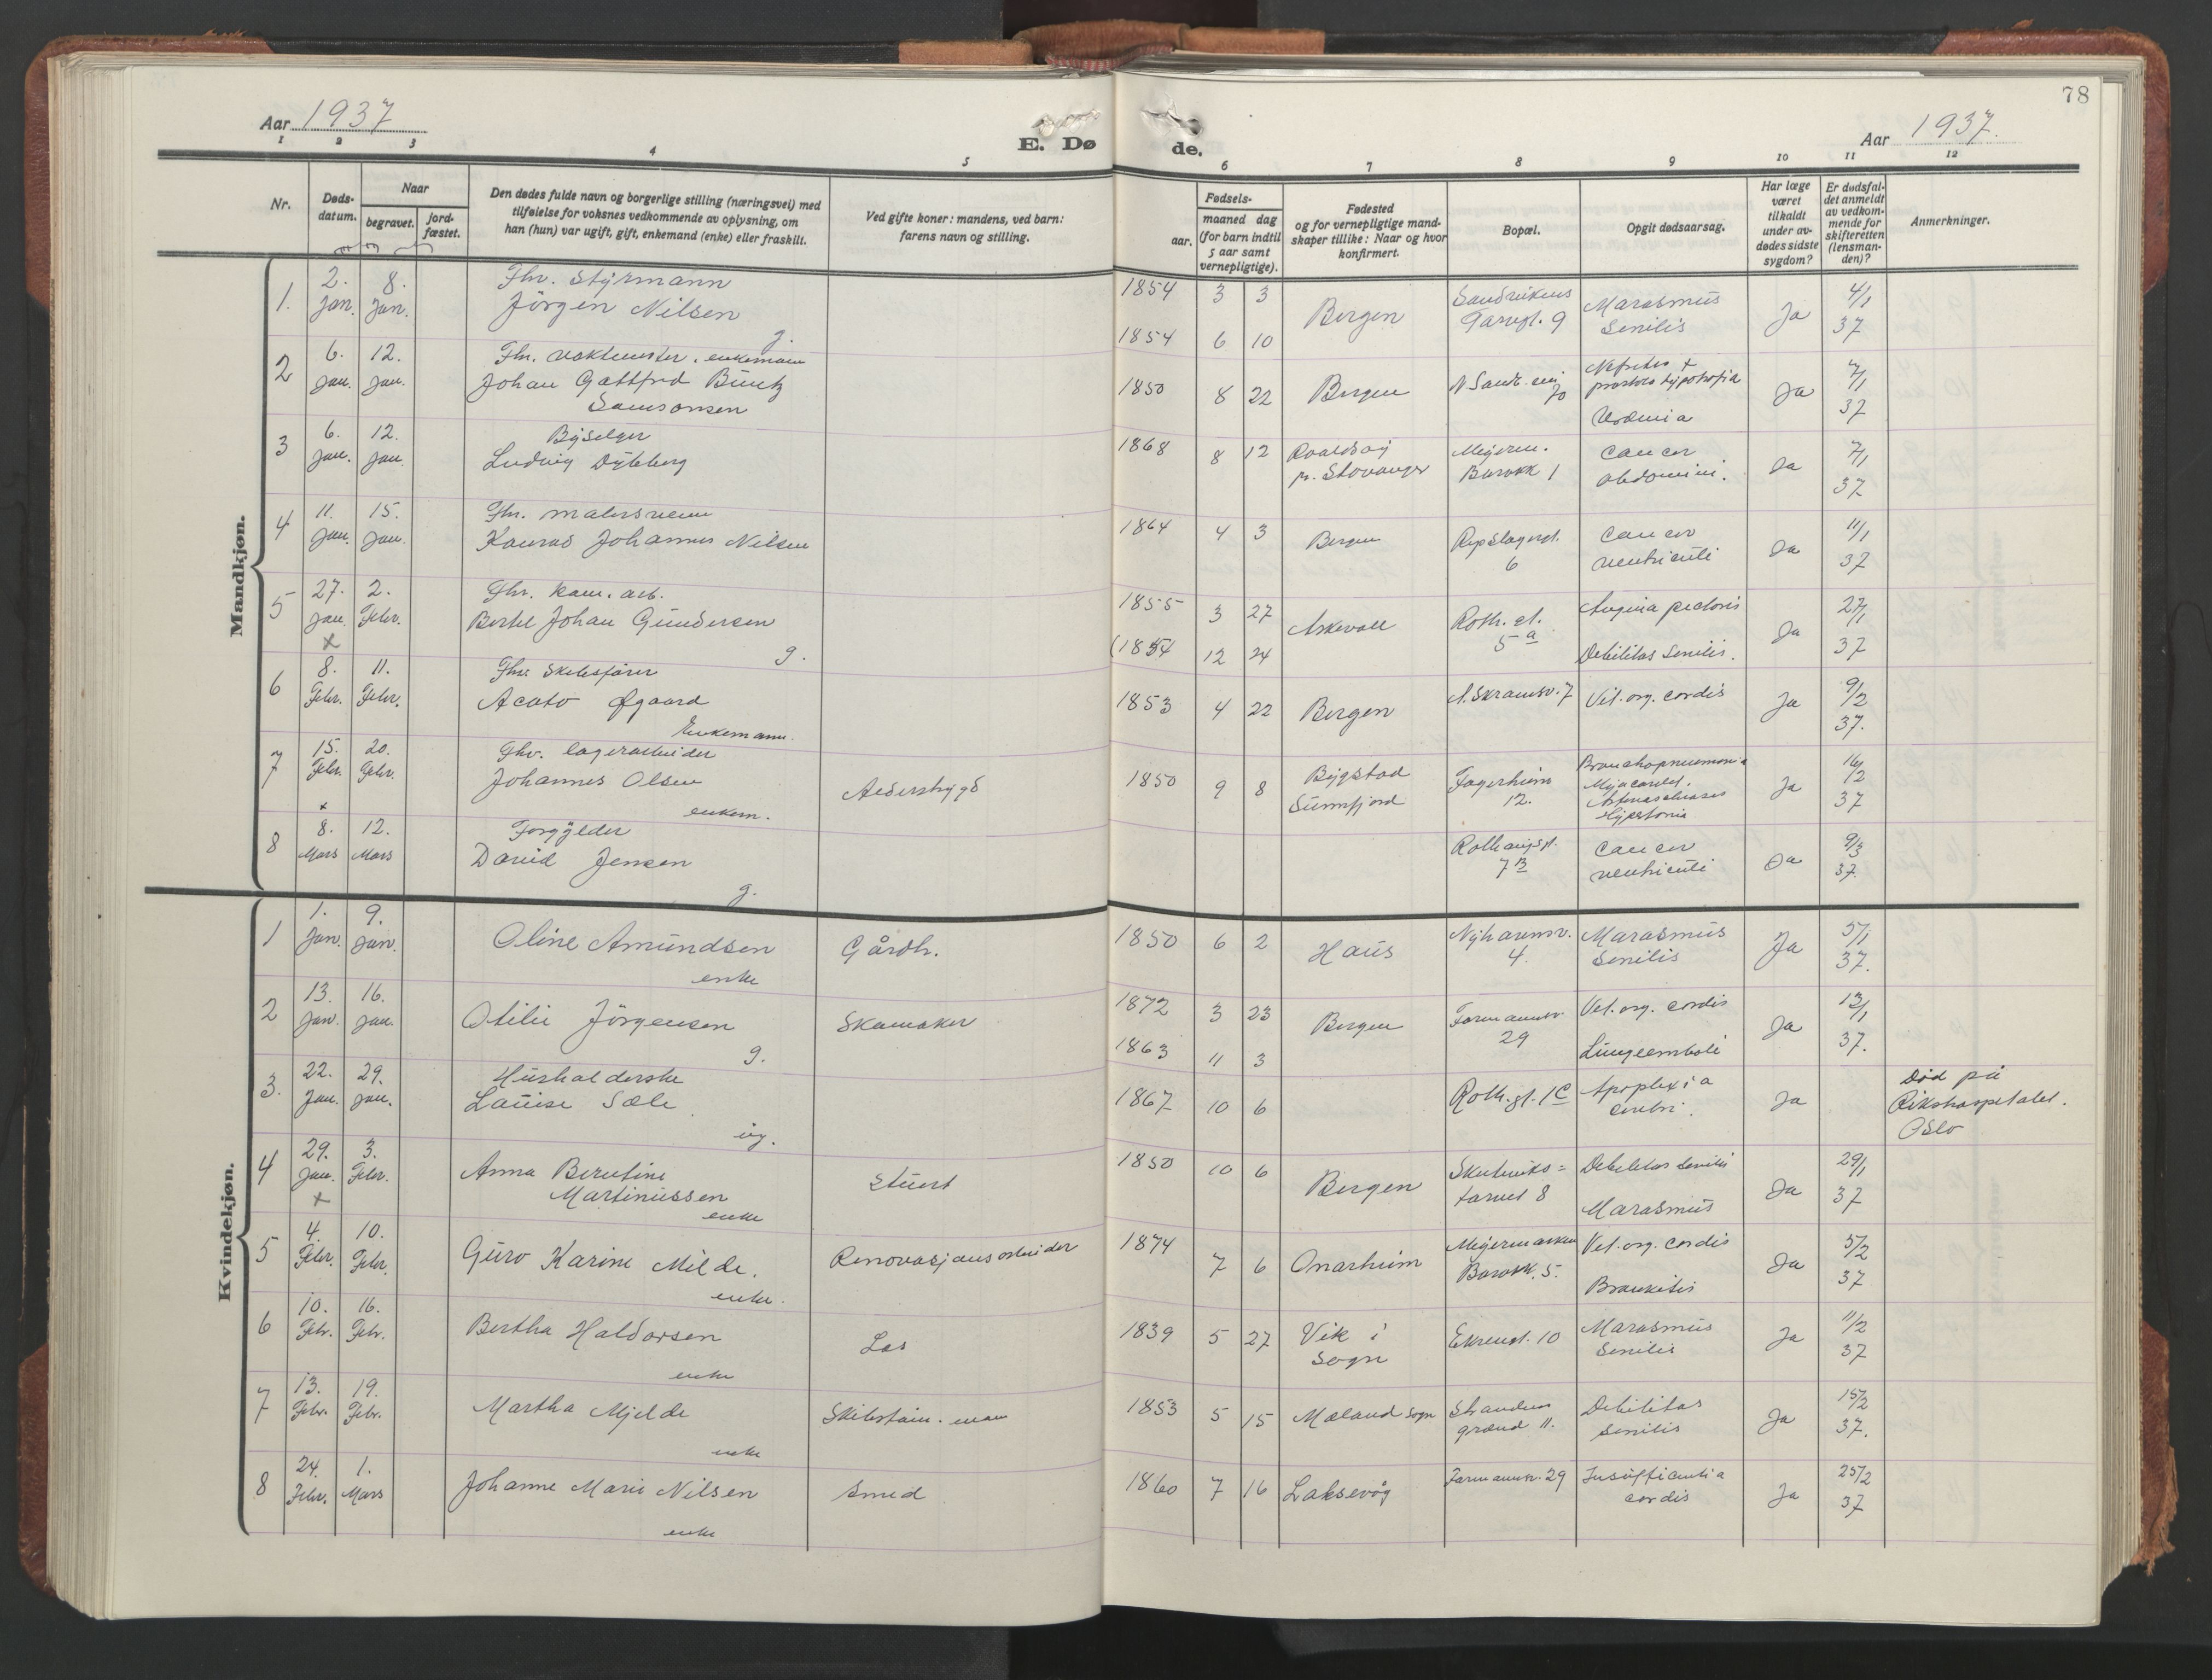 78
Aar 1937
E. Dø
de.
Aar 1937.
1 2 3 4 5 6 7 8 9 10 11 12
Nr.
Døds-
datum.
Naar
begravet.
jord-
fæstet.
Den dødes fulde navn og borgerlige stilling (næringsvei) med
tilføielse for voksnes vedkommende av oplysning, om
han (hun) var ugift, gift, enkemand (enke) eller fraskilt.
Ved gifte koner: mandens, ved barn:
farens navn og stilling.
Fødsels-
aar.
maaned dag
(for barn indtil
5 aar samt
vernepligtige).
Fødested
og for vernepligtige mand-
skaper tillike: Naar og hvor
konfirmert.
Bopæl.
Opgit dødsaarsag.
Har læge
været
tilkaldt
under av-
dødes sidste
sygdom?
Er dødsfal-
det anmeldt
av vedkom-
mende for
skifteretten
(lensman-
den)?
Anmerkninger.
Mandkjøn.
1. 2. Jan. 8. Jan. Fhv. Styrmann
Jörgen Nilsen g.
1854 3 3 Bergen Sandvikens Marasmus Senilis Ja 4/1 37
1854 6 10
2 6. Jan. 12. Jan. Fhv. enkemann
Johan Gottfred
Samsonsen
1850 8 22 Bergen N Sandv. vei 70 Uræmia Ja 7/1 37
3 6. Jan. 12. Jan.
Ludvig Dybberg
1868 8 12 pr. Stavanger Barakk 1 Cancer abdomini. Ja 7/1 37
4 11. Jan. 15. Jan. Fhv. malersvenn
Konrad Johannes Nilsen
1864 4 3 Bergen Repslagergt. 6 Cancer ventriculi Ja 11/1 37
5 27. Jan. x 2. Febr. Fhv. kom. arb.
Bertel Johan Gundersen g.
1855 3 27 Askevoll 5 a Angina pectoris
12 24 Debilitas Senilis. Ja 27/1 37
6 8. Febr. 11. Febr. Fhv. Skibsfører
Acato Øgaard
Enkemann.
1853 4 22 Bergen A. Skramsv. 7 Vit. org. cordis Ja 9/2 37.
7 15. Febr. x 20. Febr. Fhv. lagerarbeider
Johannes Olsen
enkem.
1850 9 8 Bygstad
Sunnfjord Fagerheim 12. Bronchopneumonia
Ja 16/2 37
8 8. Mars 12. Mars Forgylder
David Jensen
g.
7 B Cancer ventriculi Ja 9/3 37.
Kvindekjøn.
1 1. Jan. 9. Jan. Oline Amundsen
enke Gårdbr.
1850 6 2 Haus Nyhavnsv. 4. Marasmus Senilis Ja 5/1 37.
2 13. Jan. 16. Jan. Otilie Jörgensen
g. Skomaker
1872 3 23 Bergen Formannsv. 29 Vit. org. cordis
1863 11 3 Lungeemboli Ja 13/1 37.
3. 22. Jan. 29. Jan. Husholderske
Louise Sæle
ug.
1867 10 6 Roth. gt. 1C Apoplexia cerebri. Ja Død på
Rikshospitalet.
Oslo
4 29. Jan. x 3. Febr. Anna Berntine
Martinussen
enke Stuert
1850 10 6 Bergen Skuteviks=
torvet 8 Debilitas Senilis
Marasmus Ja 29/1 37
5 4. Febr. 10. Febr. Guro Karine Milde.
enke. Renovasjonsarbeider
1874 7 6 Onarheim Meyermarken
Barakk. 5. Vit. org. cordis
Bronkitis Ja 5/2 37
6 10. Febr. 16. Febr. Bertha Haldorsen
enke Los
1839 5 27 Vik i
Sogn Ekrengt. 10 Marasmus Senilis Ja 11/2 37
7 13. Febr. 19. Febr. Martha Mjelde
enke
1853 5 15 Sogn 11. Debilitas senilis Ja 15/2 37.
8 24. Febr. 1. Mars Johanne Marie Nilsen
enke Smed
1860 7 16 Laksevåg Formannsv. 29 Insufficientia
cordis Ja 25/2 37